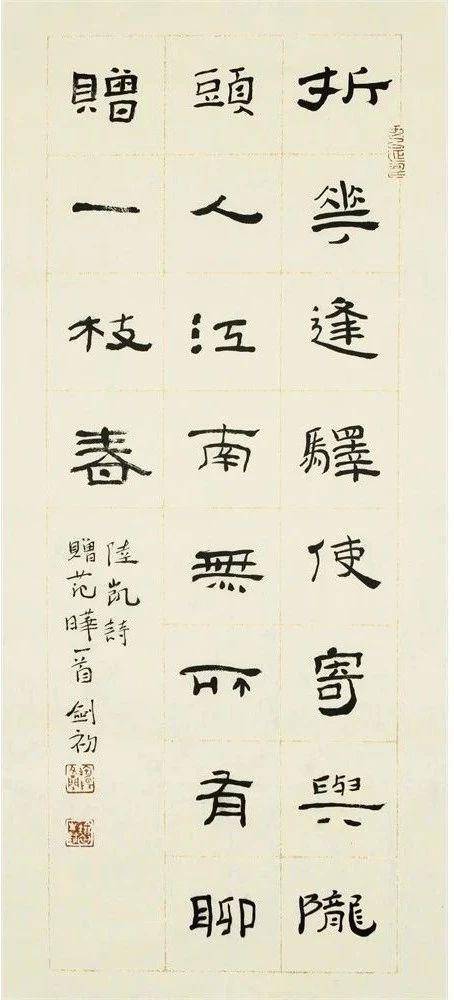 折花逢驛使寄與隴
頭人江南無所有聊
贈一枝春
陸凱詩
贈范曄一首 劍初